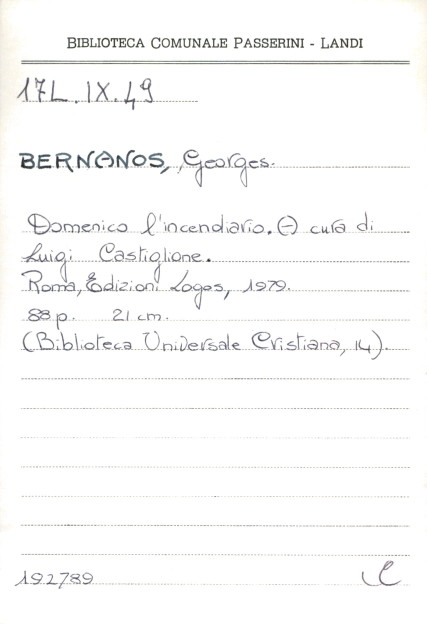 BIBLIOTECA COMUNALE PASSERINI - LANDI
17L.IX.49
BERNANOS, Georges.
Domenico l'incendiario. (-) cura di
Luigi Castiglione.
Roma, Edizioni Logos, 1979.
88 p. 21 cm.
(Biblioteca Universale Cristiana, 14).
192789